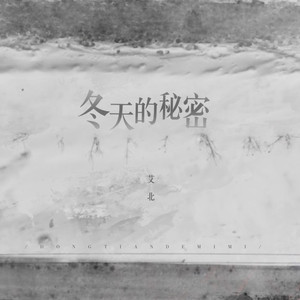 冬天的秘密
艾北
DONGTIANDEMIMI